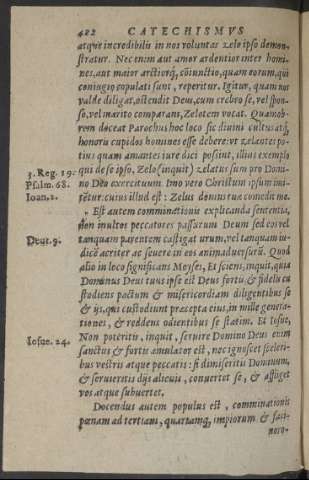 422 CATECHISMVS
atque incredibilis in nos voluntas zelo ipso demon-
stratur. Nec enim aut amor ardentior inter homi-
nes, aut maior arctiorq́; cōiunctio, quam eorum, qui
coniugio copulati sunt, reperitur. Igitur, quam nos
valde diligat, ostendit Deus, cum crebro se, vel spon-
so, vel marito comparans, Zelotem vocat. Quamob-
rem doceat Parochus hoc loco sic diuini cultus atq́;
honoris cupidos homines esse debere: vt zelantes po-
tius quam amantes iure dici possint, illius exemplo
qui de se ipso, Zelo (inquit) zelatus sum pro Domi-
3. Reg. 19.
no Deo exercituum. Imo vero Christum ipsum imi-
Psalm. 68.
tētur: cuius illud est: Zelus domus tuæ comedit me.
Ioan. 2.
Est autem comminationis explicanda sententia,
non inultos peccatores passurum Deum sed eos vel
tanquam parentem castigaturum, vel tanquam iu-
Deut. 9.
dicē acriter ac seuere in eos animaduersurū. Quod
alio in loco significans Moyses, Et sciens, inquit, quia
Dominus Deus tuus ipse est Deus fortis, & fidelis cu
stodiens pactum & misericordiam diligentibus se
& ijs, qui custodiunt præcepta eius, in mille genera-
tiones, & reddens odientibus se statim. Et Iosue,
Non poteritis, inquit, seruire Domino Deus enim
Iosue. 24.
sanctus & fortis æmulator est, nec ignoscet sceleri-
bus vestris atque peccatis: si dimiseritis Dominum,
& seruieritis dijs alienis, conuertet se, & affliget
vos atque subuertet.
Docendus autem populus est, comminationis
pœnam ad tertiam, quartamq́; impiorum & faci-
noro-